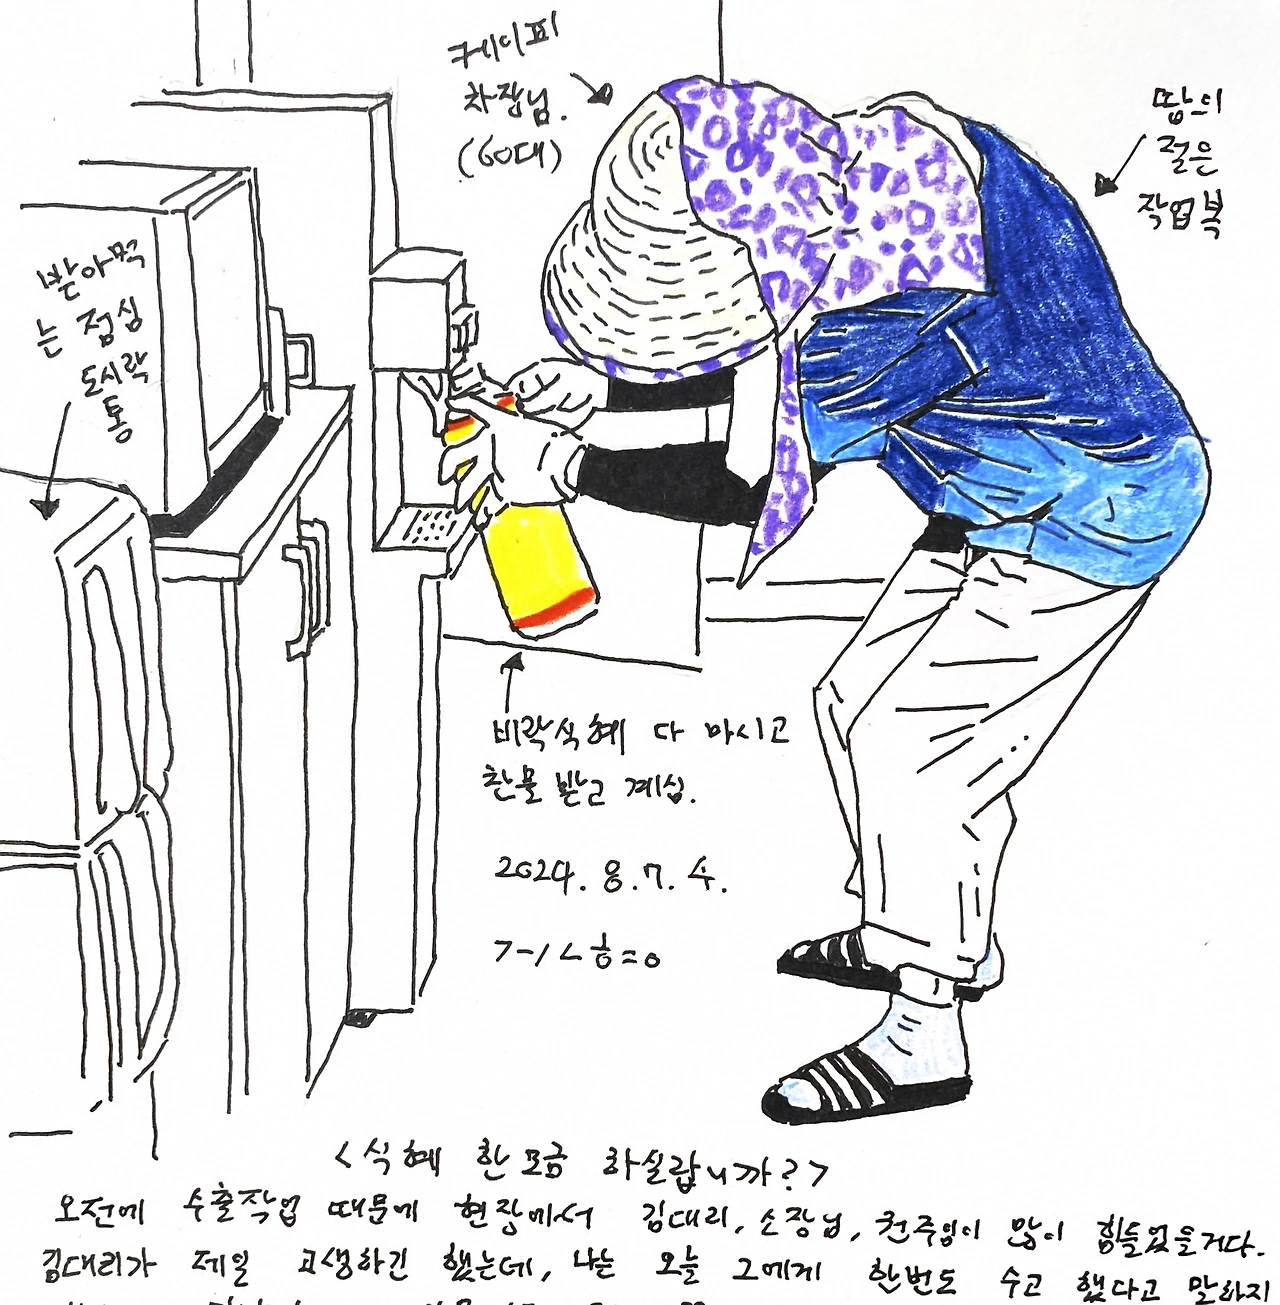 케이피
차장님.
(60대)
땀의
절은
작업복
받아먹
는 점심
도시락
통
비락식혜 다 마시고
찬물 받고 계심.
2024. 8. 7. 수.
<식혜 한 모금 하실랍니까?>
오전에 수출작업 때문에 현장에서 김대리, 소장님, 권주임이 많이 힘들었을거다.
김대리가 제일 고생하긴 했는데, 나는 오늘 그에게 한번도 수고 했다고 말하지